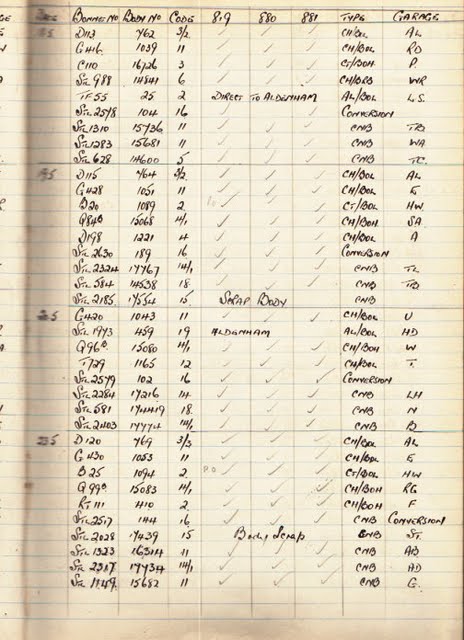 DEC BONNET NO BODY NO CODE 819 880 881 TYPE GARAGE
D113 762 3/2 ✓ ✓ ✓ CH/BOL AL
G416 1039 11 ✓ ✓ ✓ CH/BOL RD
C110 16726 3 ✓ ✓ ✓ CT/BOH P.
STL 988 14841 6 ✓ ✓ ✓ WR
TF55 25 2 DIRECT TO ALDENHAM AL/BOL L.S.
STL 2578 104 16 ✓ ✓ ✓ CONVERSION
STL 1310 15736 11 ✓ ✓ ✓ CNB TB
STL 1283 15681 11 ✓ ✓ ✓ CNB WA
STL 628 14600 5 ✓ ✓ ✓ CNB TC
195 D115 764 3/2 ✓ ✓ ✓ CH/BOL AL
G428 1051 11 ✓ ✓ ✓ CH/BOL E
B20 1089 2 ✓ ✓ ✓ CT/BOL HW
Q84B 15068 14/1 ✓ ✓ ✓ CH/BOH SA
D198 1221 4 ✓ ✓ ✓ CH/BOL A
STL 2630 189 16 ✓ ✓ ✓ CONVERSION
STL 2324 17767 14/1 ✓ ✓ ✓ CNB TL
STL 584 14538 18 ✓ ✓ ✓ CNB TB
STL 2185 17554 15 SCRAP BODY CNB
205 G420 1043 11 ✓ ✓ ✓ CH/BOL U
STL 1973 459 19 ALDENHAM AL/BOL HD
Q96B 15080 14/1 ✓ ✓ ✓ CH/BOH W
T729 1165 12 ✓ ✓ ✓ CH/BOL T.
STL 2579 102 16 ✓ ✓ ✓ CONVERSION
STL 2284 17216 14 ✓ ✓ ✓ CNB LH
STL 581 18 ✓ ✓ ✓ CNB N
STL 2403 17774 14/1 ✓ ✓ ✓ CNB
235 D120 769 3/3 ✓ ✓ ✓ CH/BOL AL
G430 1053 11 ✓ ✓ ✓ CH/BOL E
B25 1094 2 PO ✓ ✓ ✓ CT/BOL HW
Q99B 15083 14/1 ✓ ✓ ✓ CH/BOH RG
RT111 410 2 ✓ ✓ ✓ CH/BOH F
STL 2517 144 16 ✓ ✓ ✓ CNB CONVERSION
STL 2028 17439 15 Body Scrap CNB ST.
STL 1323 11 ✓ ✓ ✓ CNB AB
STL 2317 17734 14/1 ✓ ✓ ✓ CNB AD
STL 15682 11 ✓ ✓ ✓ CNB G.